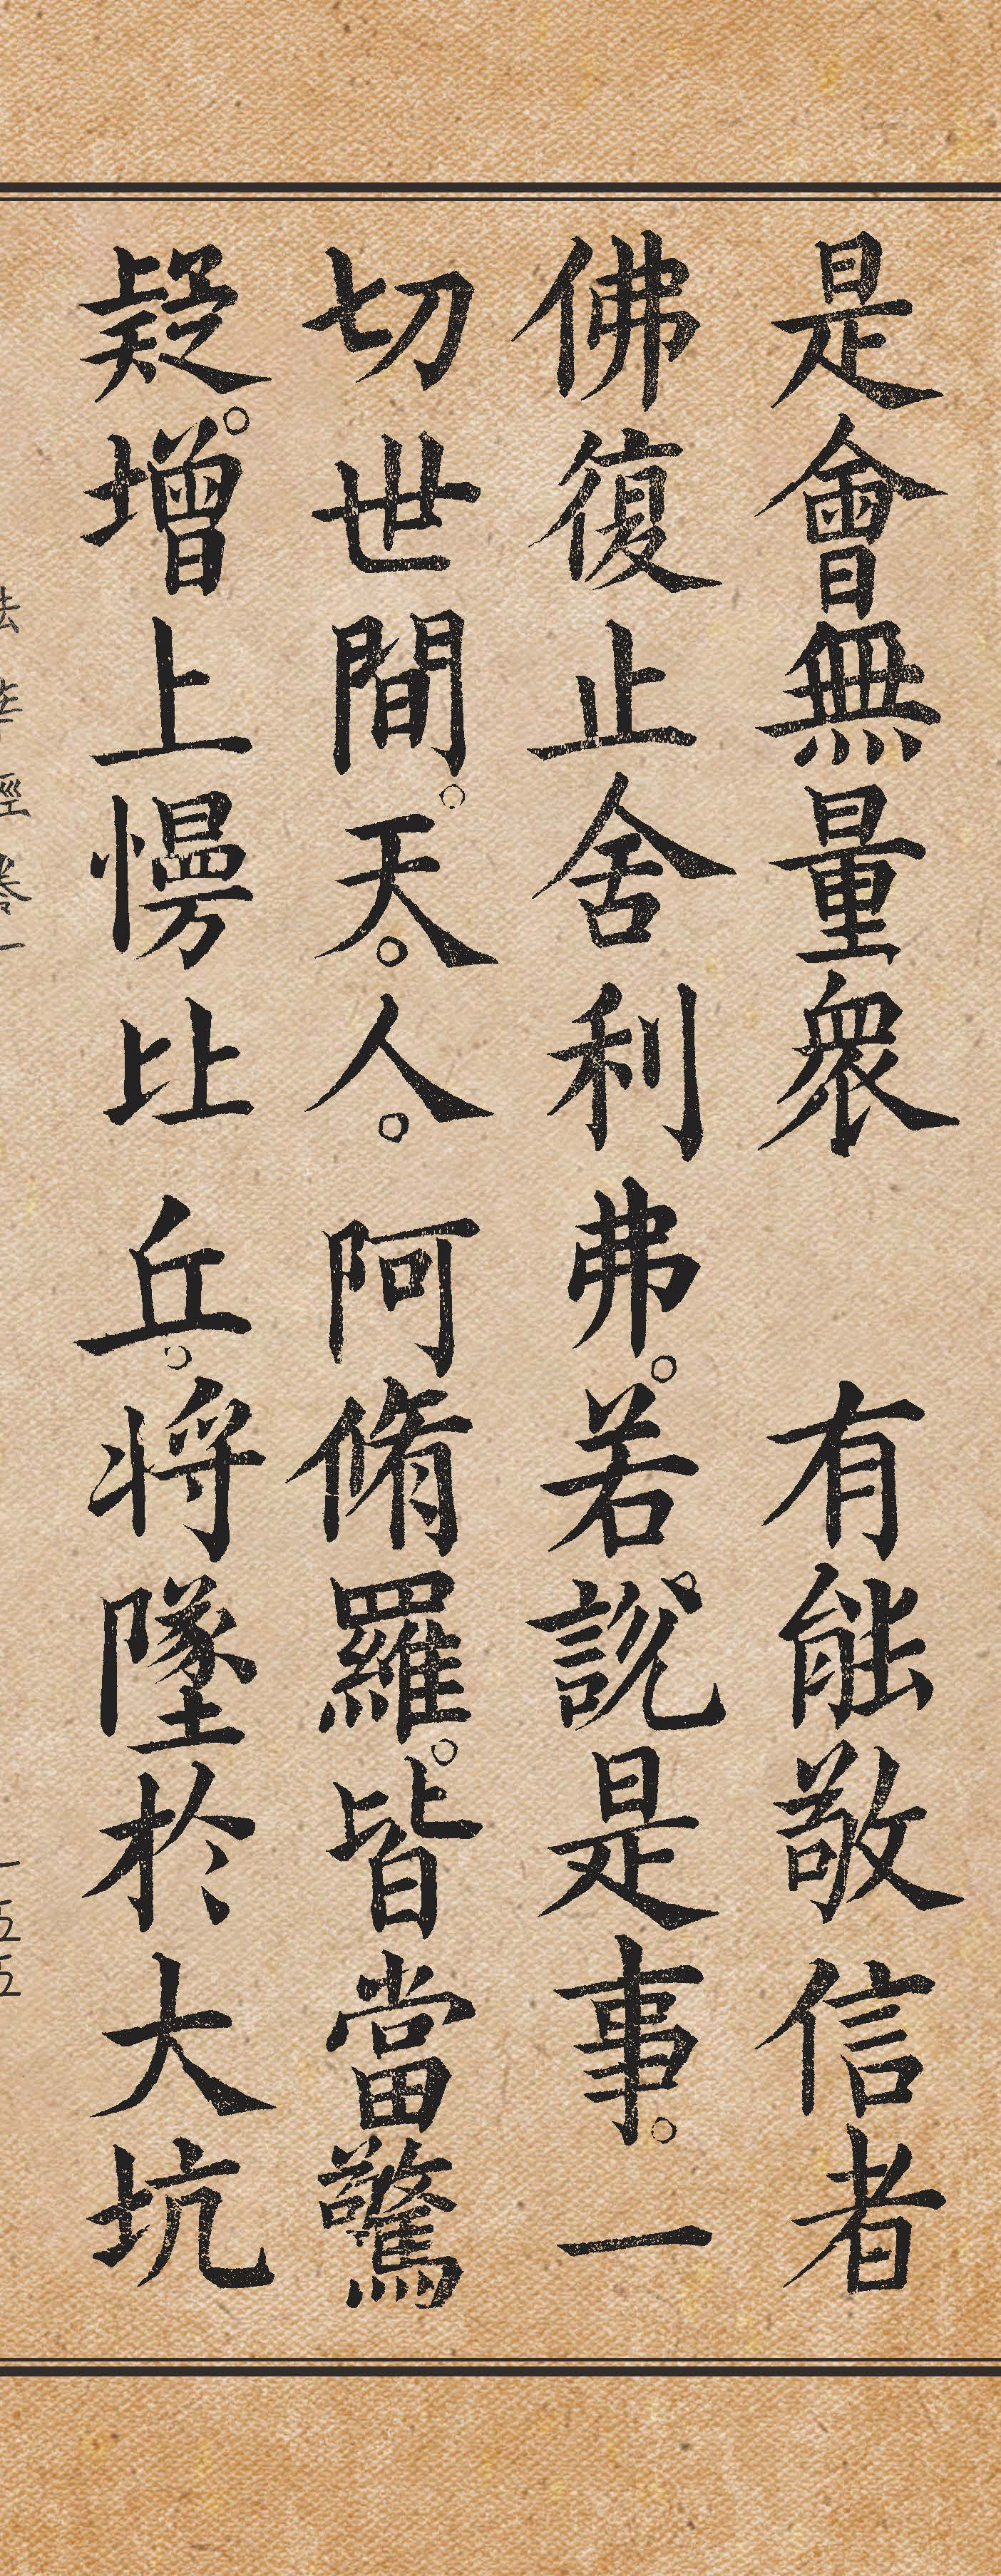 是會無量眾　有能敬信者
佛復止舍利弗。若說是事。一
切世間。天。人。阿脩羅。皆當驚
疑。增上慢比丘。將墜於大坑
法華經卷一　一五五